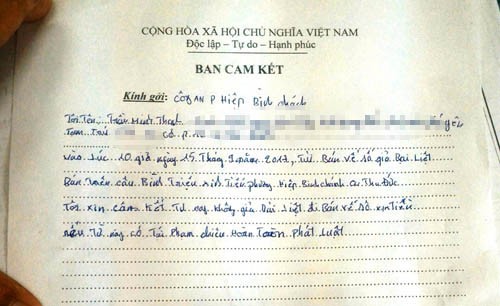 CỘNG HÒA XÃ HỘI CHỦ NGHĨA VIỆT NAM
Độc lập – Tự do – Hạnh phúc
BẢN CAM KẾT
Kính gởi: CÔNG AN P Hiệp Bình chánh
Tôi Tên Trần Minh
Tạm Trú
vào lúc 10 giờ ngày 15 Tháng 9 năm 2017, Tôi Bán vé số giả Bại Liệt
Bán Trên cầu Bình Triệu Hiệp Bình chánh Q Thủ Đức
Tôi xin cam Kết Từ nay không giả Bại Liệt đi Bán vé số xin tiền
nếu Từ nay có Tái Phạm chiệu Hoàn Toàn Phát Luật